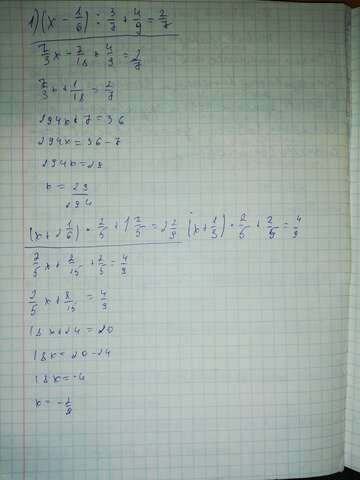 1) (x - 1/6) : 3/7 + 4/9 = 2/7
7/3 x - 7/18 + 4/9 = 2/7
7/3 x + 1/18 = 2/7
294x + 7 = 36
294x = 36 - 7
294x = 29
x = 29/294
(x + 2 1/6) · 2/5 + 1 2/5 = 2 2/9 (x + 1/3) · 2/5 + 2/5 = 4/9
2/5 x + 2/15 + 2/5 = 4/9
2/5 x + 8/15 = 4/9
18x + 24 = 20
18x = 20 - 24
18x = -4
x = - 2/9